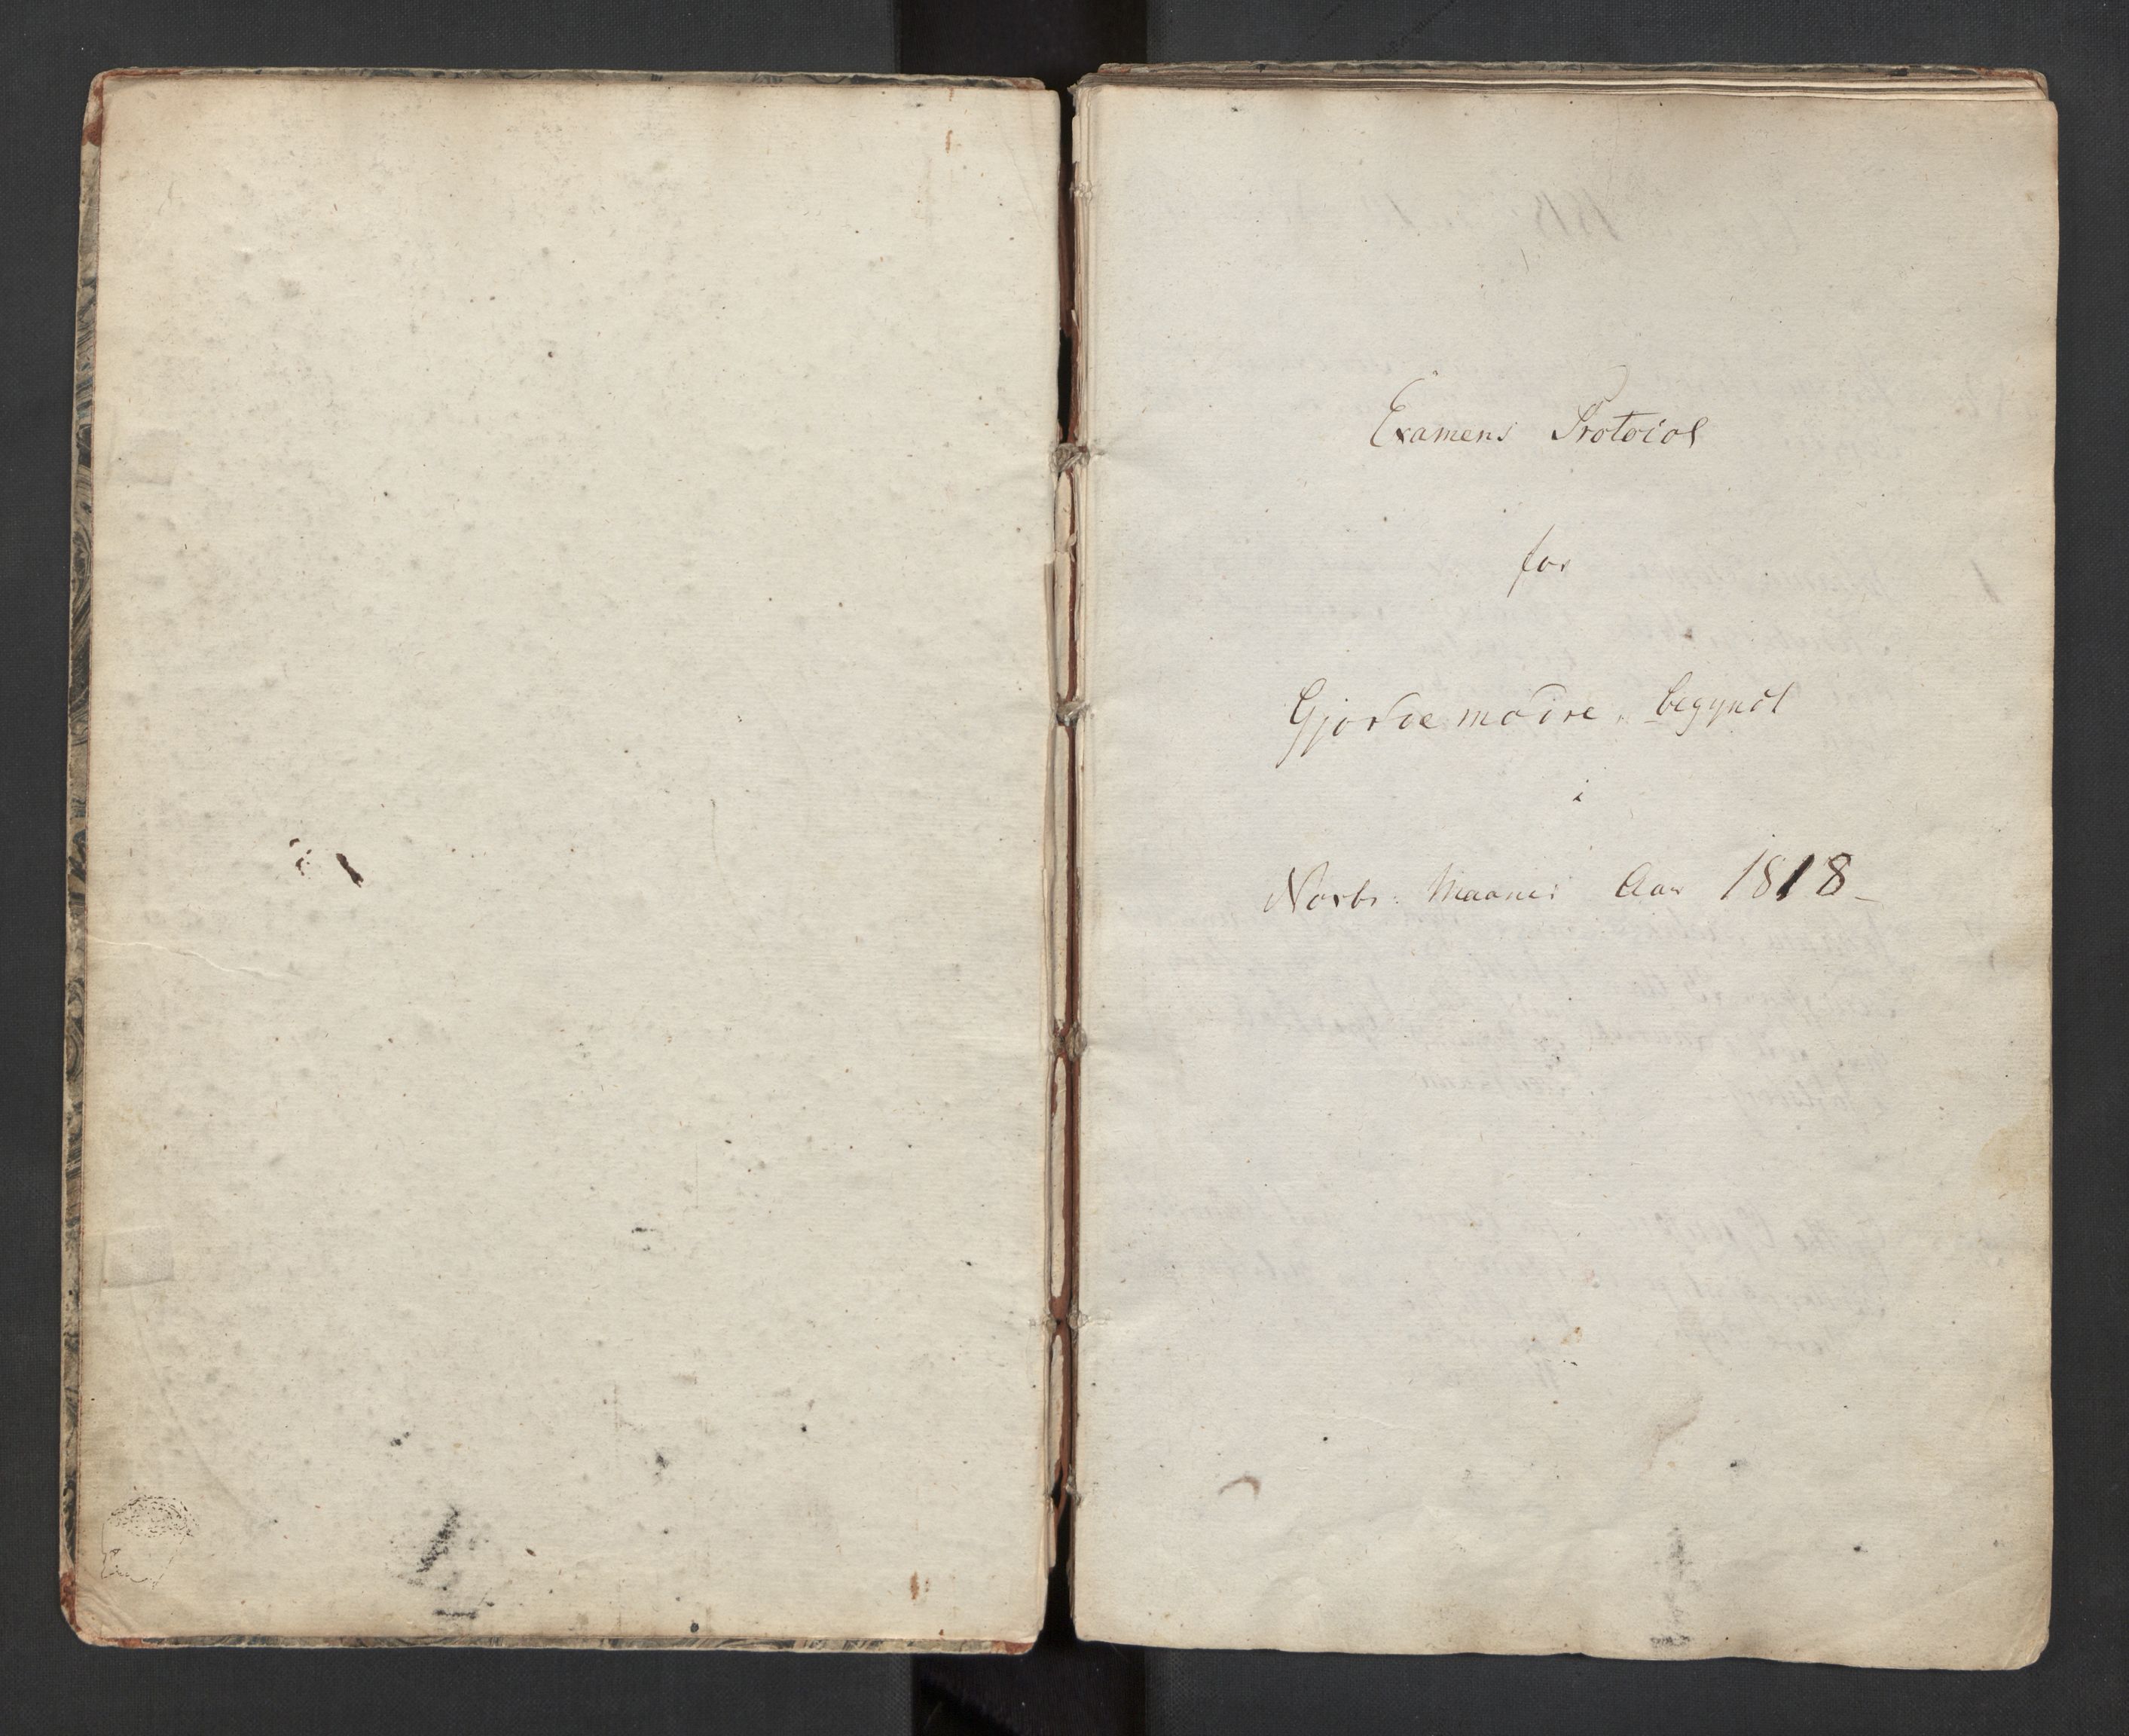 Examens Protocol
for
Gjordemødre, begyndt
i
Novbr: Maaned Aar 1818 –